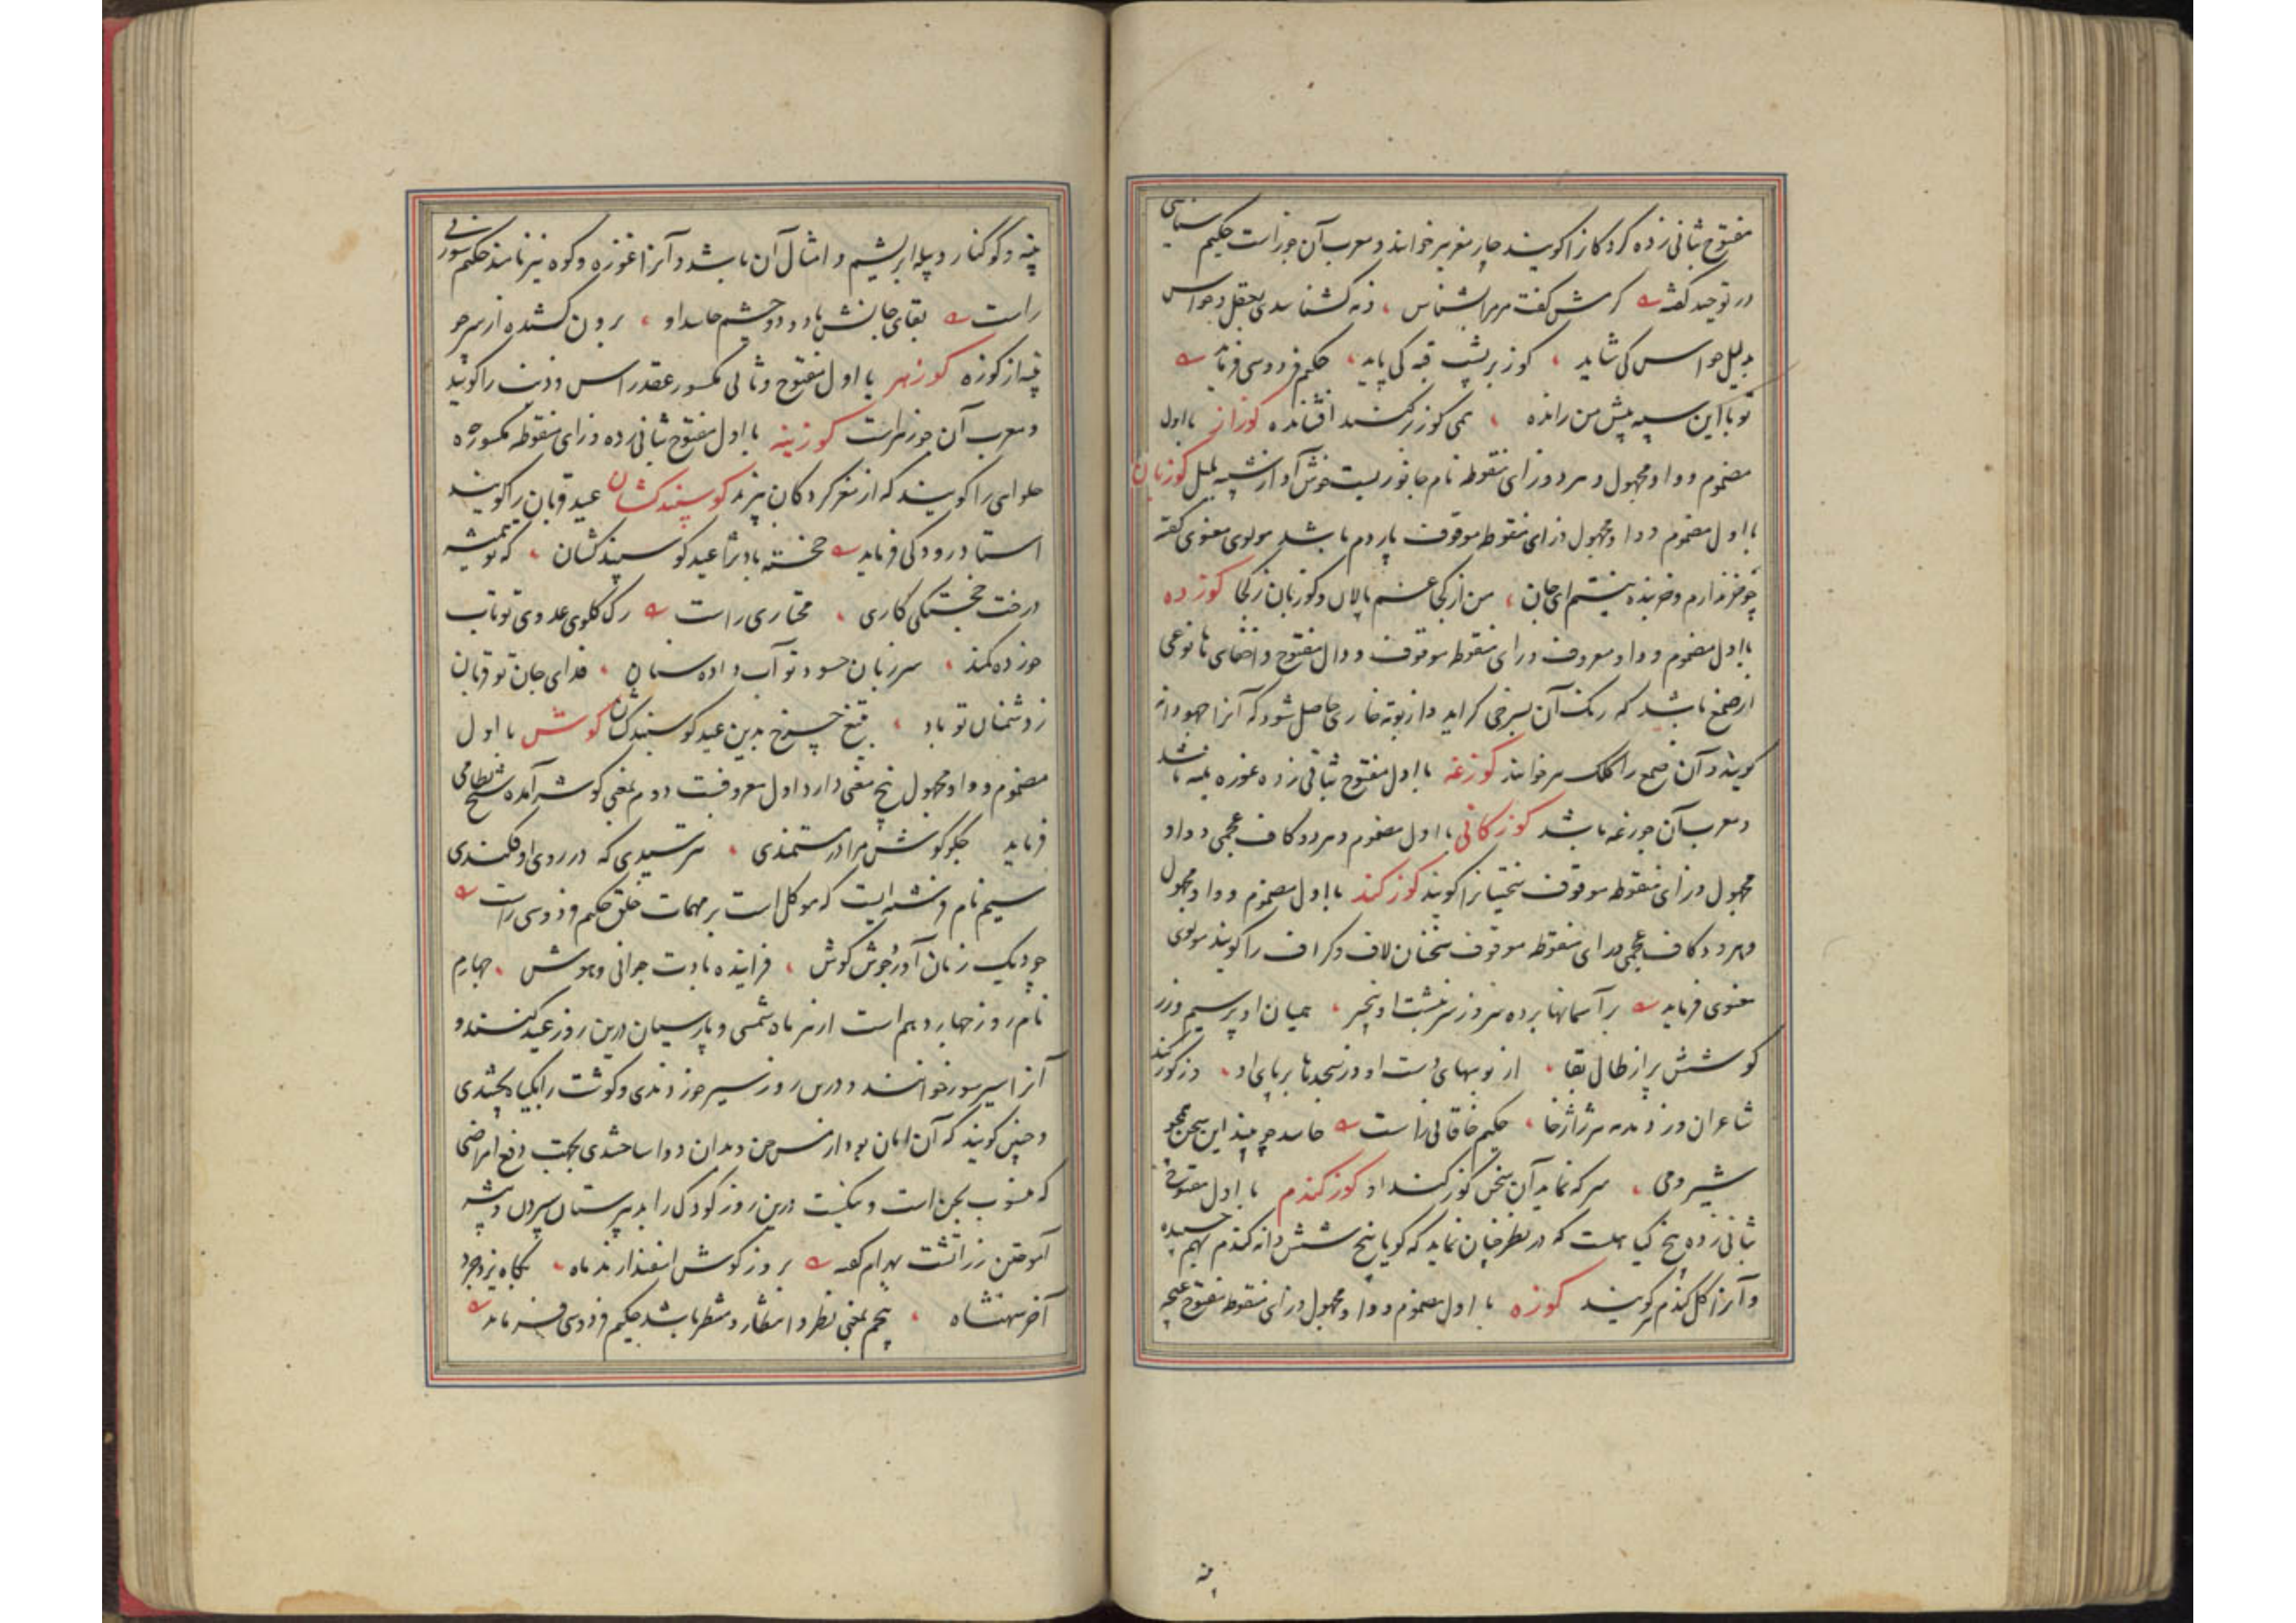 مفتوح بثانی زده کردکانرا کویند و چارمغز نیز خوانند و معرب آن جوز است حکیم سنایی
در توحید کفته کرمش کفت مر مرا بشناس ، ورنه کشناسدی بعقل و حواس
بدلیل حواس کی شاید ، کوز بر پشت قبه کی پاید ، حکیم فردوسی فرماید
تو با این سپه پیش من رانده ، همی کوز بر کنبد افشانده کوزاز با اول
مضموم و واو مجهول و هر دو زای منقوطه نام جانوریست خوش آواز شبیه بلبل کوزبان
با اول مضموم و واو مجهول و زای منقوطه موقوف پاردم باشد مولوی معنوی کفته
چو خر ندارم و خربنده نیستم ای جان ، من از کجا غم پالان و کوزبان ز کجا کوزده
با اول مضموم و واو معروف و زای منقوطه موقوف و دال مفتوح و اخفای ها نوعی
از صمغ باشد که رنک آن بسرخی کراید و از بوته خاری حاصل شود که آنرا جهودانه
کویند و آن صمغ را کلک نیز خوانند کوزغه با اول مفتوح بثانی زده غوزه پنبه باشد
و معرب آن جوزغه باشد کوزکانی با اول مضموم و هر دو کاف عجمی و واو
مجهول و زای منقوطه موقوف سختیانرا کویند کوزکند با اول مضموم و واو مجهول
و هر دو کاف عجمی و زای منقوطه موقوف سخنان لاف و کزاف را کویند مولوی
معنوی فرماید بر آسمانها برده سر وز سرنبشت او بیخبر ، همیان او پر سیم و زر
کوشش پر از طال بقا ، از بوسهای دست او وز سجدها بر پای او ، وز کوزکند
شاعران وز دمدمه هر ژاژخا ، حکیم خاقانی راست حاسد چو بیند این سخن همچو
شیر و می ، سرکه نماید آن سخن کوزکند او کوزکندم با اول مفتوح
بثانی زده بیخ کیاهیست که در نظر چنان نماید که کویا پنج شش دانه کندم بهم چسپیده
و آنرا کل کندم نیز کویند کوزه با اول مضموم و واو مجهول و زای منقوطه مفتوح غنچه
پنبه
پنبه و کوکنار و پیله ابریشم و امثال آن باشد و آنرا غوزه و کوه نیز نامند حکیم سوزنی
راست بقای جانش باد و دو چشم حاسد او ، برون کشده از سر چو
پنبه از کوزه کوزهر با اول مفتوح و ثالی مکسور عقد راس و ذنب را کویند
و معرب آن جوزهر است کوزینه با اول مفتوح بثانی زده و زای منقوطه مکسوره
حلوای را کویند که از مغز کردکان پزند کوسپندکشان عید قربان را کویند
استاد رودکی فرماید خجسته بادت عید کوسپندکشان ، که تو همیشه
درخت خجستکی کاری ، مختاری راست رک کلوی عدوی تو تاب
خورده کمند ، سر زبان حسود تو آب داده سنان ، فدای جان تو قربان
ز دشمنان تو باد ، بتیغ چرخ بدین عید کوسپندکشان کوش با اول
مضموم و واو مجهول پنج معنی دارد اول معروفست دوم بمعنی کوشه آمده شیخ نظامی
فرماید جکرکوش مرا در مستمندی ، سرتسیدی که در روی اوفکندی
سیم نام فرشته ایست که موکل است بر مهمات خلق حکیم فردوسی راست
چو دیک زمان آورد جوش کوش ، فزاینده بادت جوانی و هوش ، چهارم
نام روز چهاردهم است از هر ماه شمسی و پارسیان درین روز عید کنند و
آنرا سیرسور خوانند و درین روز سیر خوردندی و کوشت را بکیاه پختندی
و چنین کویند که آن امان بود از مس جن و بدان دوا ساختندی بجهت دفع امراضی
که منسوب بجن است و نیکست درین روز کودک را بدبیرستان سپردن و پیشه
آموختن زراتشت بهرام کفته بروز کوش اسفندارمذ ماه ، بکاه یزدجرد
آخر شهنشاه ، پنجم بمعنی نظر و انتظار و منتظر باشد حکیم فردوسی فرماید